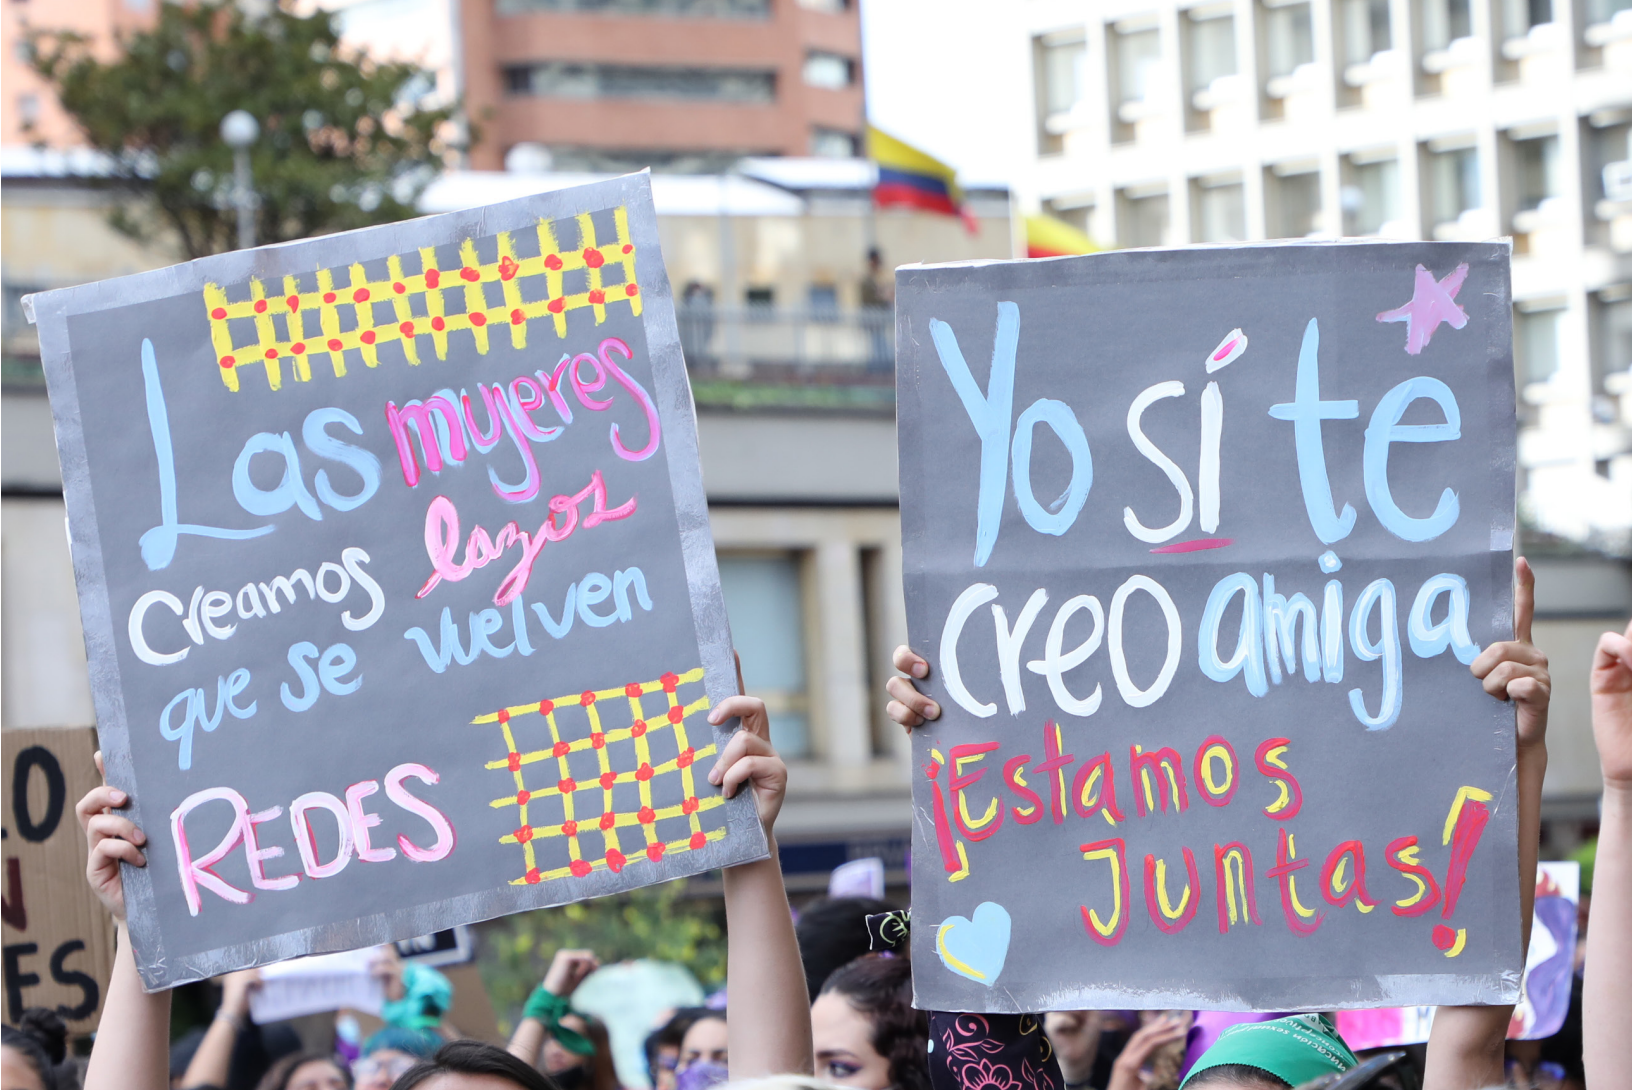 Las mujeres
Creamos lazos
que se vuelven
REDES
Yo sí te
creo amiga
¡Estamos
Juntas!
O
N
ES